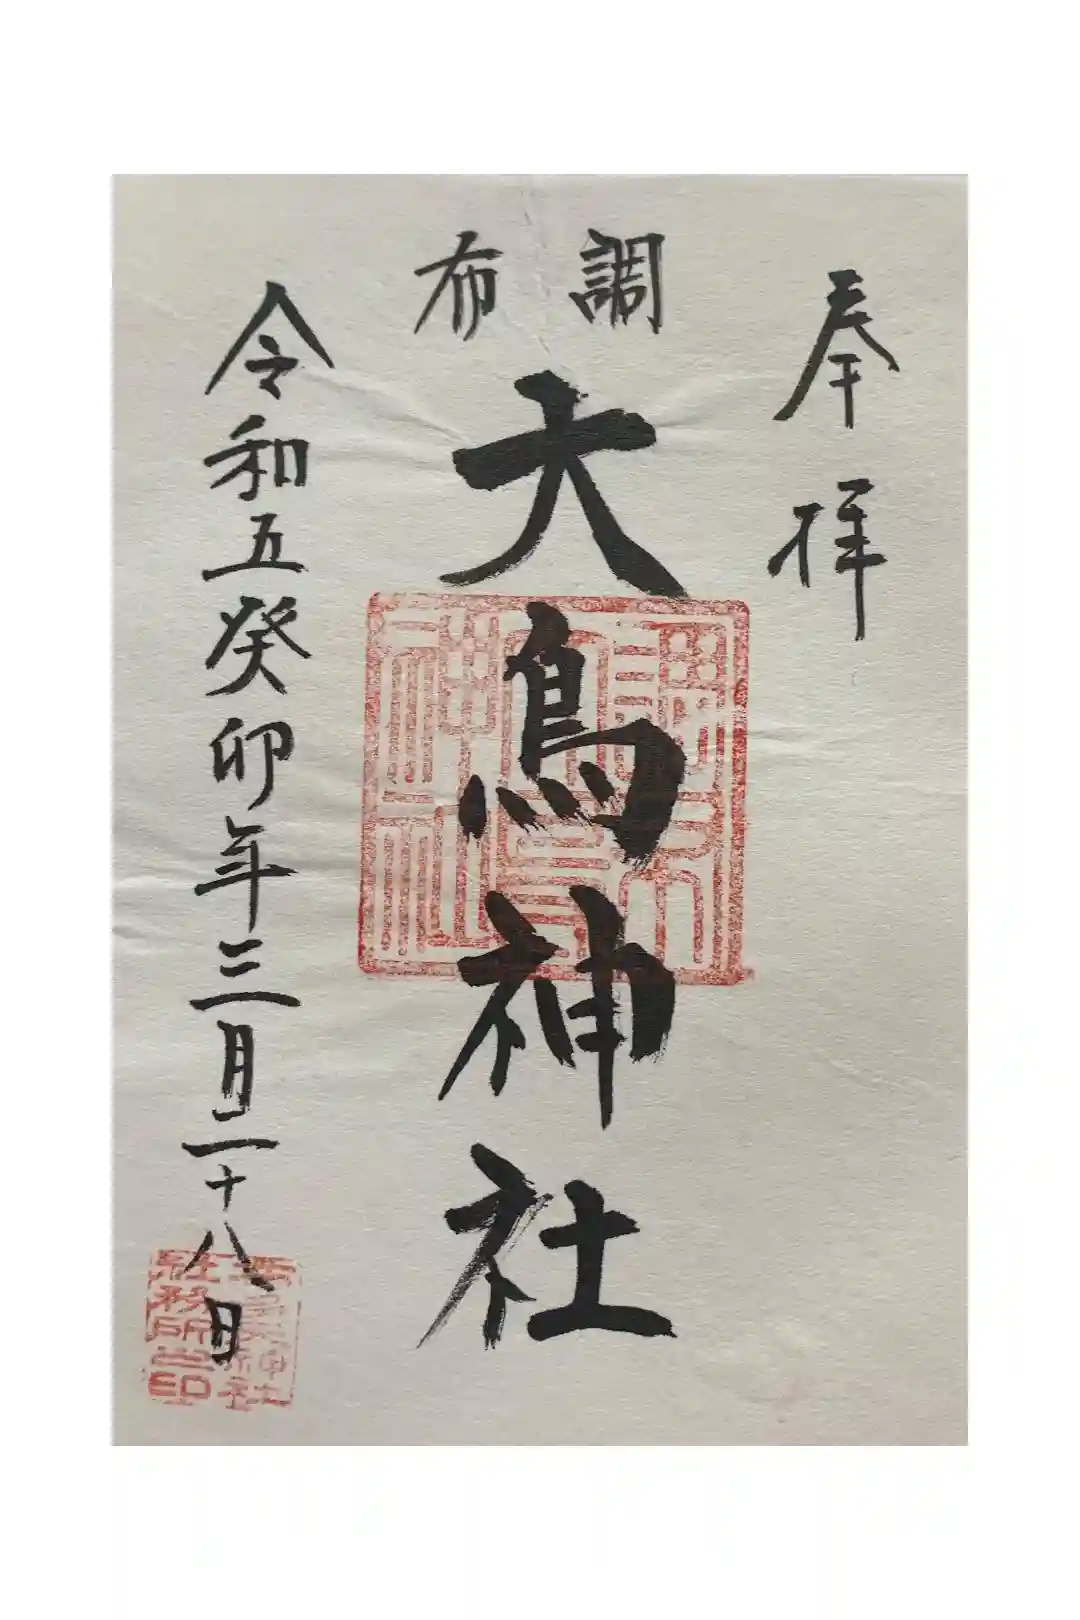 奉拝
調布
大鳥神社
令和五癸卯年三月二十八日
調布
大鳥
神社
社務所之印